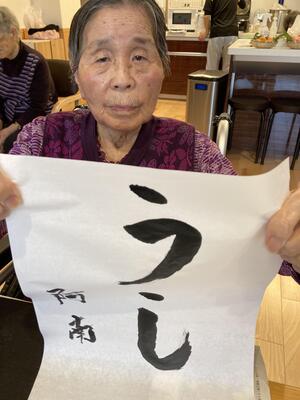 うし
阿南